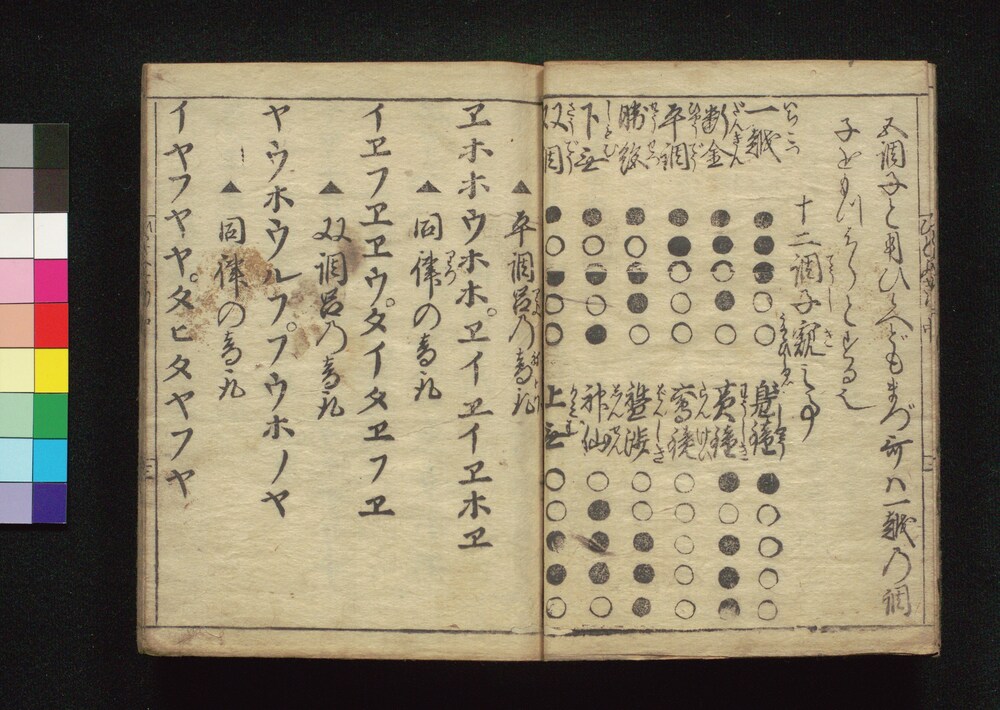 五調子と用ひらへども まづ 所ハ一越乃調
子をもつはらとする也
十二調子竅之事
一越
断金
平調
勝絶
下無
双調
鳧鐘
黄鐘
鸞鏡
盤渉
神仙
上無
▲平調呂乃音孔
ヱホホウホホ。ヱイヱイヱホヱ
▲同律の音孔
イヱフヱヱウ。タイタヱフヱ
▲双調呂乃音孔
ヤウホウルフ。フウホノヤ
▲同律の音孔
イヤフヤヤ。タヒタヤフヤ